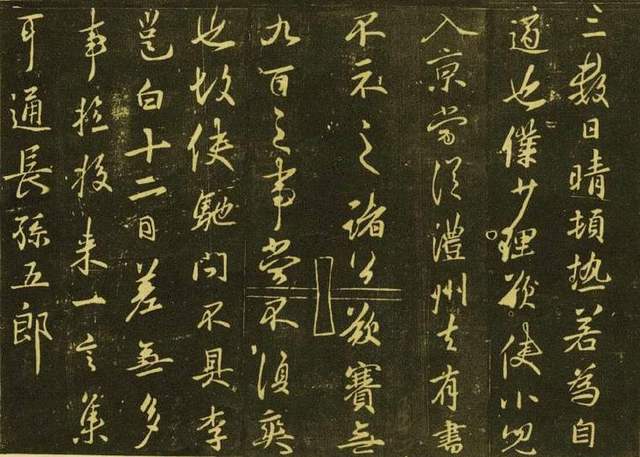 三數日晴頓熱若為自
適也僕少理欲使小兒
入京當從澧州去有書
不示之諸公欲賽無
九百之事嘗不須爽
也故使馳問不具李
邕白十二日差無多
事來一言集
耳通長孫五郎